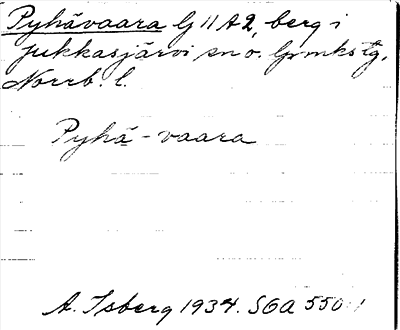 Pyhävaara Lj 11 A2, berg i
Jukkasjärvi sn o. lpmkstg,
Norrb. l.
Pyhä-vaara
A. Isberg 1934. SOA 550:1